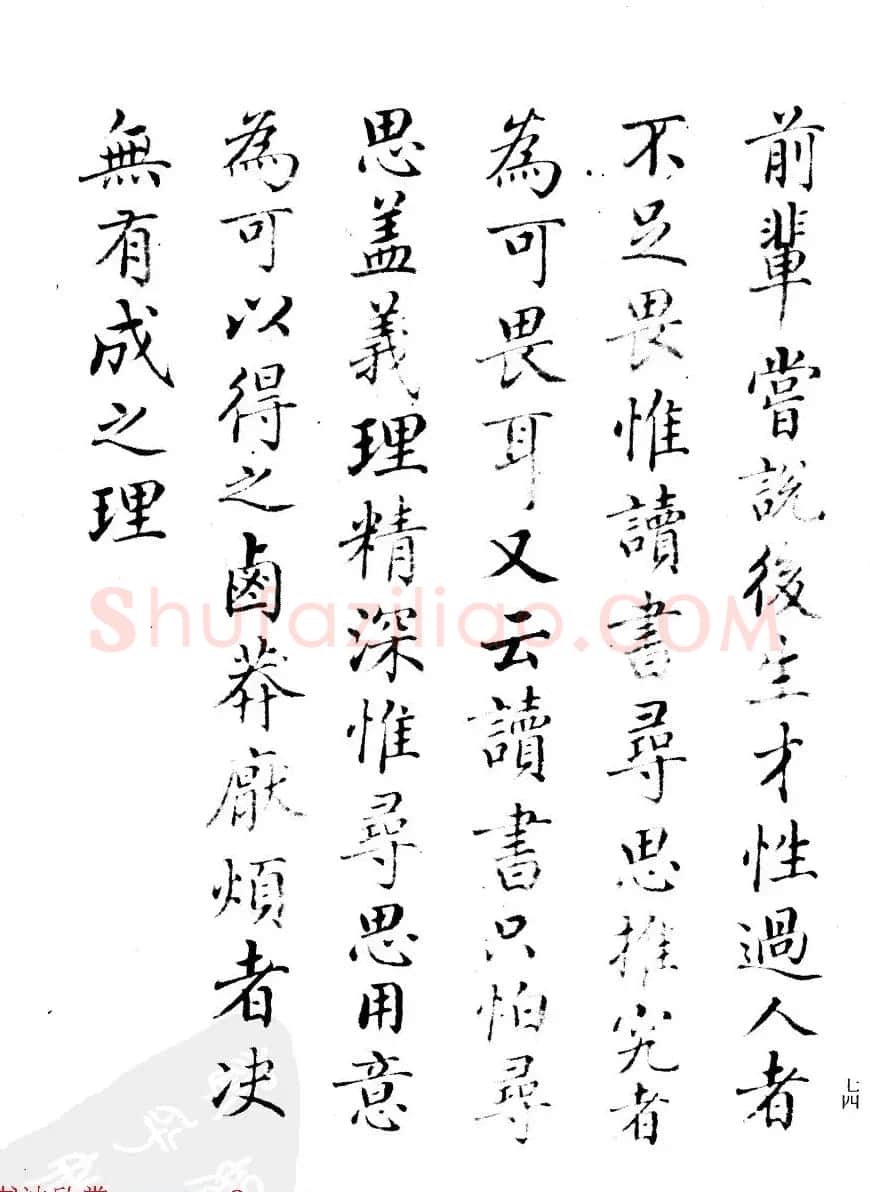 前輩嘗説後生才性過人者
不足畏惟讀書尋思推究者
為可畏耳又云讀書只怕尋
思盖義理精深惟尋思用意
為可以得之鹵莽厭煩者决
無有成之理
七四
Shufaziliao.COM